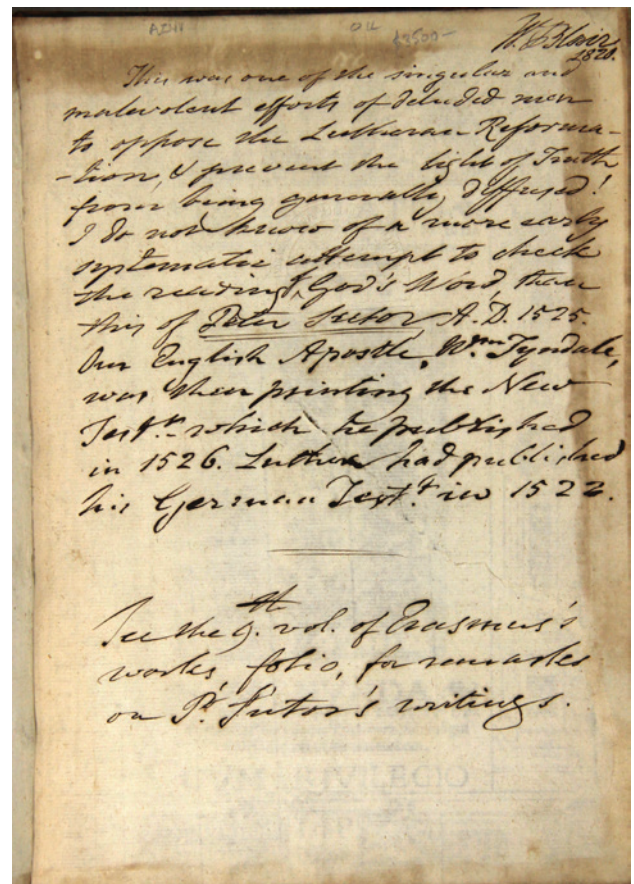 ADH
OIL
$3500-
W. Blair
1820.
This was one of the singular and
malevolent efforts of deluded men
to oppose the Lutheran Reforma-
-tion, & prevent the light of Truth
from being generally diffused!
I do not know of a more early
systematic attempt to check
the reading of God's Word, than
this of Peter Sutor A.D. 1525.
Our English Apostle, Wm Tyndale,
was then printing the New
Testt. which he published
in 1526. Luther had published
his German Testt. in 1522.
See the 9th. vol. of Erasmus's
works, folio, for remarks
on Pr. Sutor's writings.